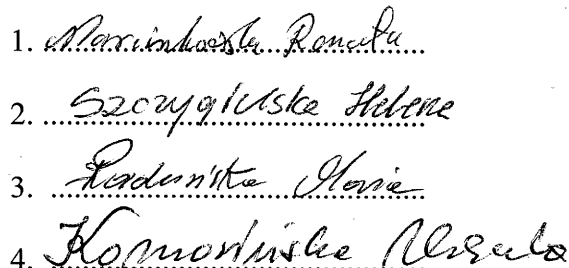 1. Marcinkowska Renata
2. Szczygielska Helena
3. Radumska Maria
4. Komosińska Urszula